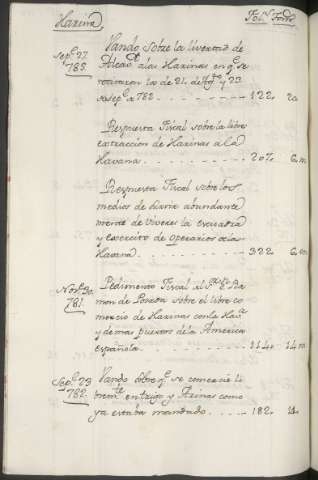 Harina Fol.s Tom.s
Sep.e 27 Vando sôbre la livertad de
783. Alcav.a alas Harinas en q.e se
revocaron los de 21. de Ag.to y 23
de Sep.e de 782 122. 2o
Respuesta Fiscal sobre la libre
extraccion de Harinas a la
Havana 207. 6.o
Respuesta Fiscal sobre los
medios de surtir abundante
mente de Viveres la Escuadra
y exercito de operacion de la
Havana 322. 6.o
Nov.e 20 Pedimento Fiscal al S.or D.n Ra
781. mon de Posada sobre el libre co
mercio de Harinas con la Hav.a
y demas puertos de la America
Española 114. 14.o
Sep.e 23 Vando sôbre q.e se comercie li
782. brem.te en trigo y Arinas como
ya estaba mandado 182.